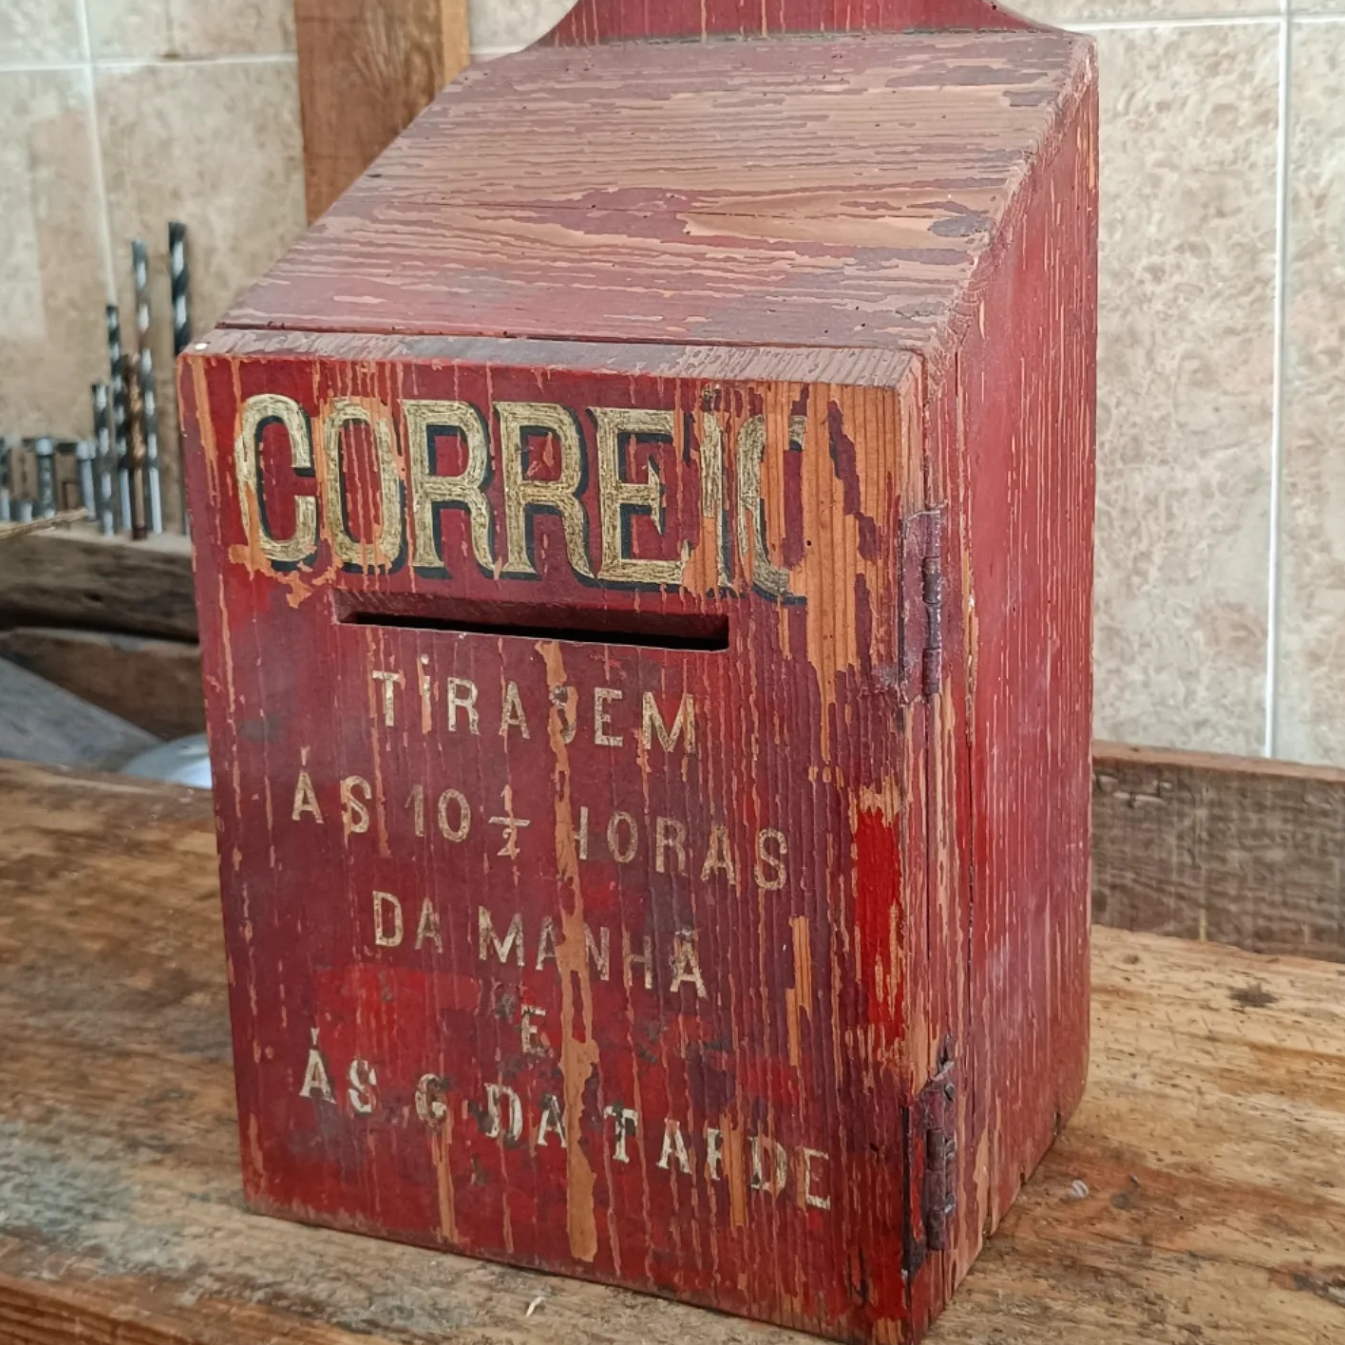 CORREIO
TIRAGEM
ÁS 10 ½ HORAS
DA MANHÃ
E
ÁS 6 DA TARDE